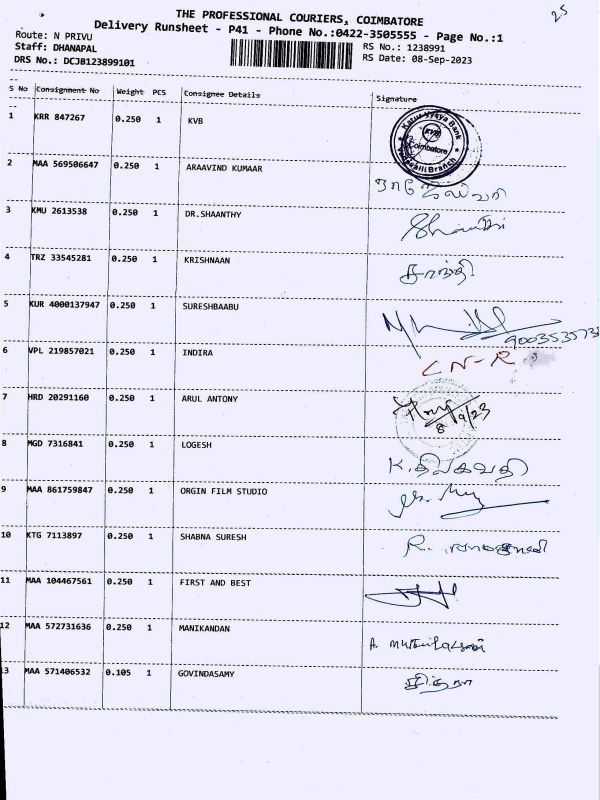 25
THE PROFESSIONAL COURIERS, COIMBATORE
Delivery Runsheet - P41 - Phone No.:0422-3505555 - Page No.:1
Route: N PRIVU
RS No.: 1238991
Staff: DHANAPAL
RS Date: 08-Sep-2023
DRS No.: DCJB123899101
S No Consignment No Weight PCS Consignee Details Signature
1 KRR 847267 0.250 1 KVB
Karur Vysya Bank KVB Coimbatore Branch
2 MAA 569506647 0.250 1 ARAAVIND KUMAAR
3 KMU 2613538 0.250 1 DR.SHAANTHY Shanthi
4 TRZ 33545281 0.250 1 KRISHNAAN சாந்தி
5 KUR 4000137947 0.250 1 SURESHBAABU
6 VPL 219857021 0.250 1 INDIRA CN-R
7 HRD 20291160 0.250 1 ARUL ANTONY 8/9/23
8 MGD 7316841 0.250 1 LOGESH K. திலகவதி
9 MAA 861759847 0.250 1 ORGIN FILM STUDIO
10 KTG 7113897 0.250 1 SHABNA SURESH R.
11 MAA 104467561 0.250 1 FIRST AND BEST
12 MAA 572731636 0.250 1 MANIKANDAN A. மணிகண்டன்
13 MAA 571406532 0.105 1 GOVINDASAMY